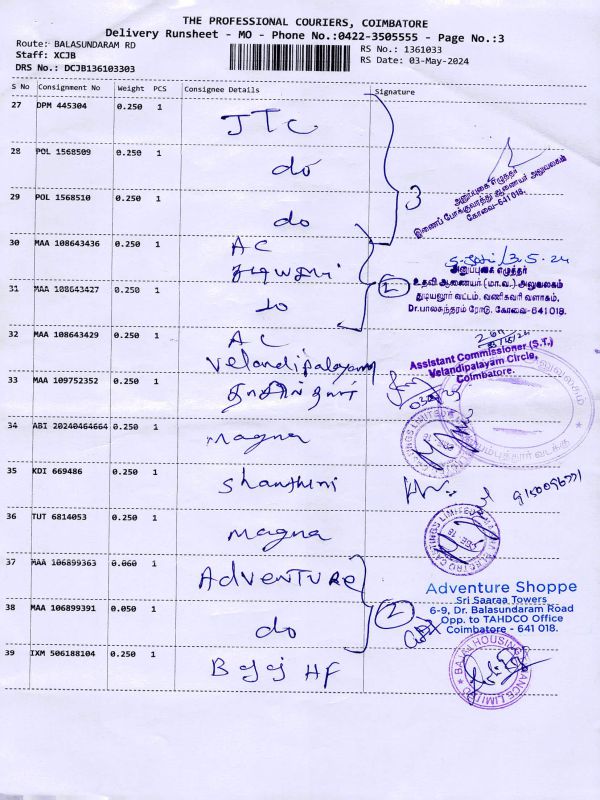 THE PROFESSIONAL COURIERS, COIMBATORE
Delivery Runsheet - MO - Phone No.:0422-3505555 - Page No.:3
Route: BALASUNDARAM RD
RS No.: 1361033
Staff: XCJB
RS Date: 03-May-2024
DRS No.: DCJB136103303
S No Consignment No Weight PCS Consignee Details Signature
27 DPM 445304 0.250 1 JTC
28 POL 1568509 0.250 1 do
29 POL 1568510 0.250 1 do
3
அனுப்புகை எழுத்தர்
இணைப் போக்குவரத்து ஆணையர் அலுவலகம்
கோவை-641 018.
30 MAA 108643436 0.250 1 AC
31 MAA 108643427 0.250 1 do
2
3.5.24
அனுப்புகை எழுத்தர்
உதவி ஆணையர் (மா.வ.) அலுவலகம்
துடியலூர் வட்டம், வணிகவரி வளாகம்,
Dr.பாலசுந்தரம் ரோடு, கோவை-641 018.
32 MAA 108643429 0.250 1 AC
Velandipalayam
Assistant Commissioner (S.T.)
Velandipalayam Circle,
Coimbatore.
33 MAA 109752352 0.250 1 தாசில்தார்
34 ABI 20240464664 0.250 1 magna
35 KDI 669486 0.250 1 Shanthini
36 TUT 6814053 0.250 1 magna
37 MAA 106899363 0.060 1 ADVENTURE
38 MAA 106899391 0.050 1 do
2
Adventure Shoppe
Sri Saaraa Towers
6-9, Dr. Balasundaram Road
Opp. to TAHDCO Office
Coimbatore - 641 018.
39 IXM 506188104 0.250 1 Bajaj HF
BAJAJ HOUSING FINANCE LIMITED